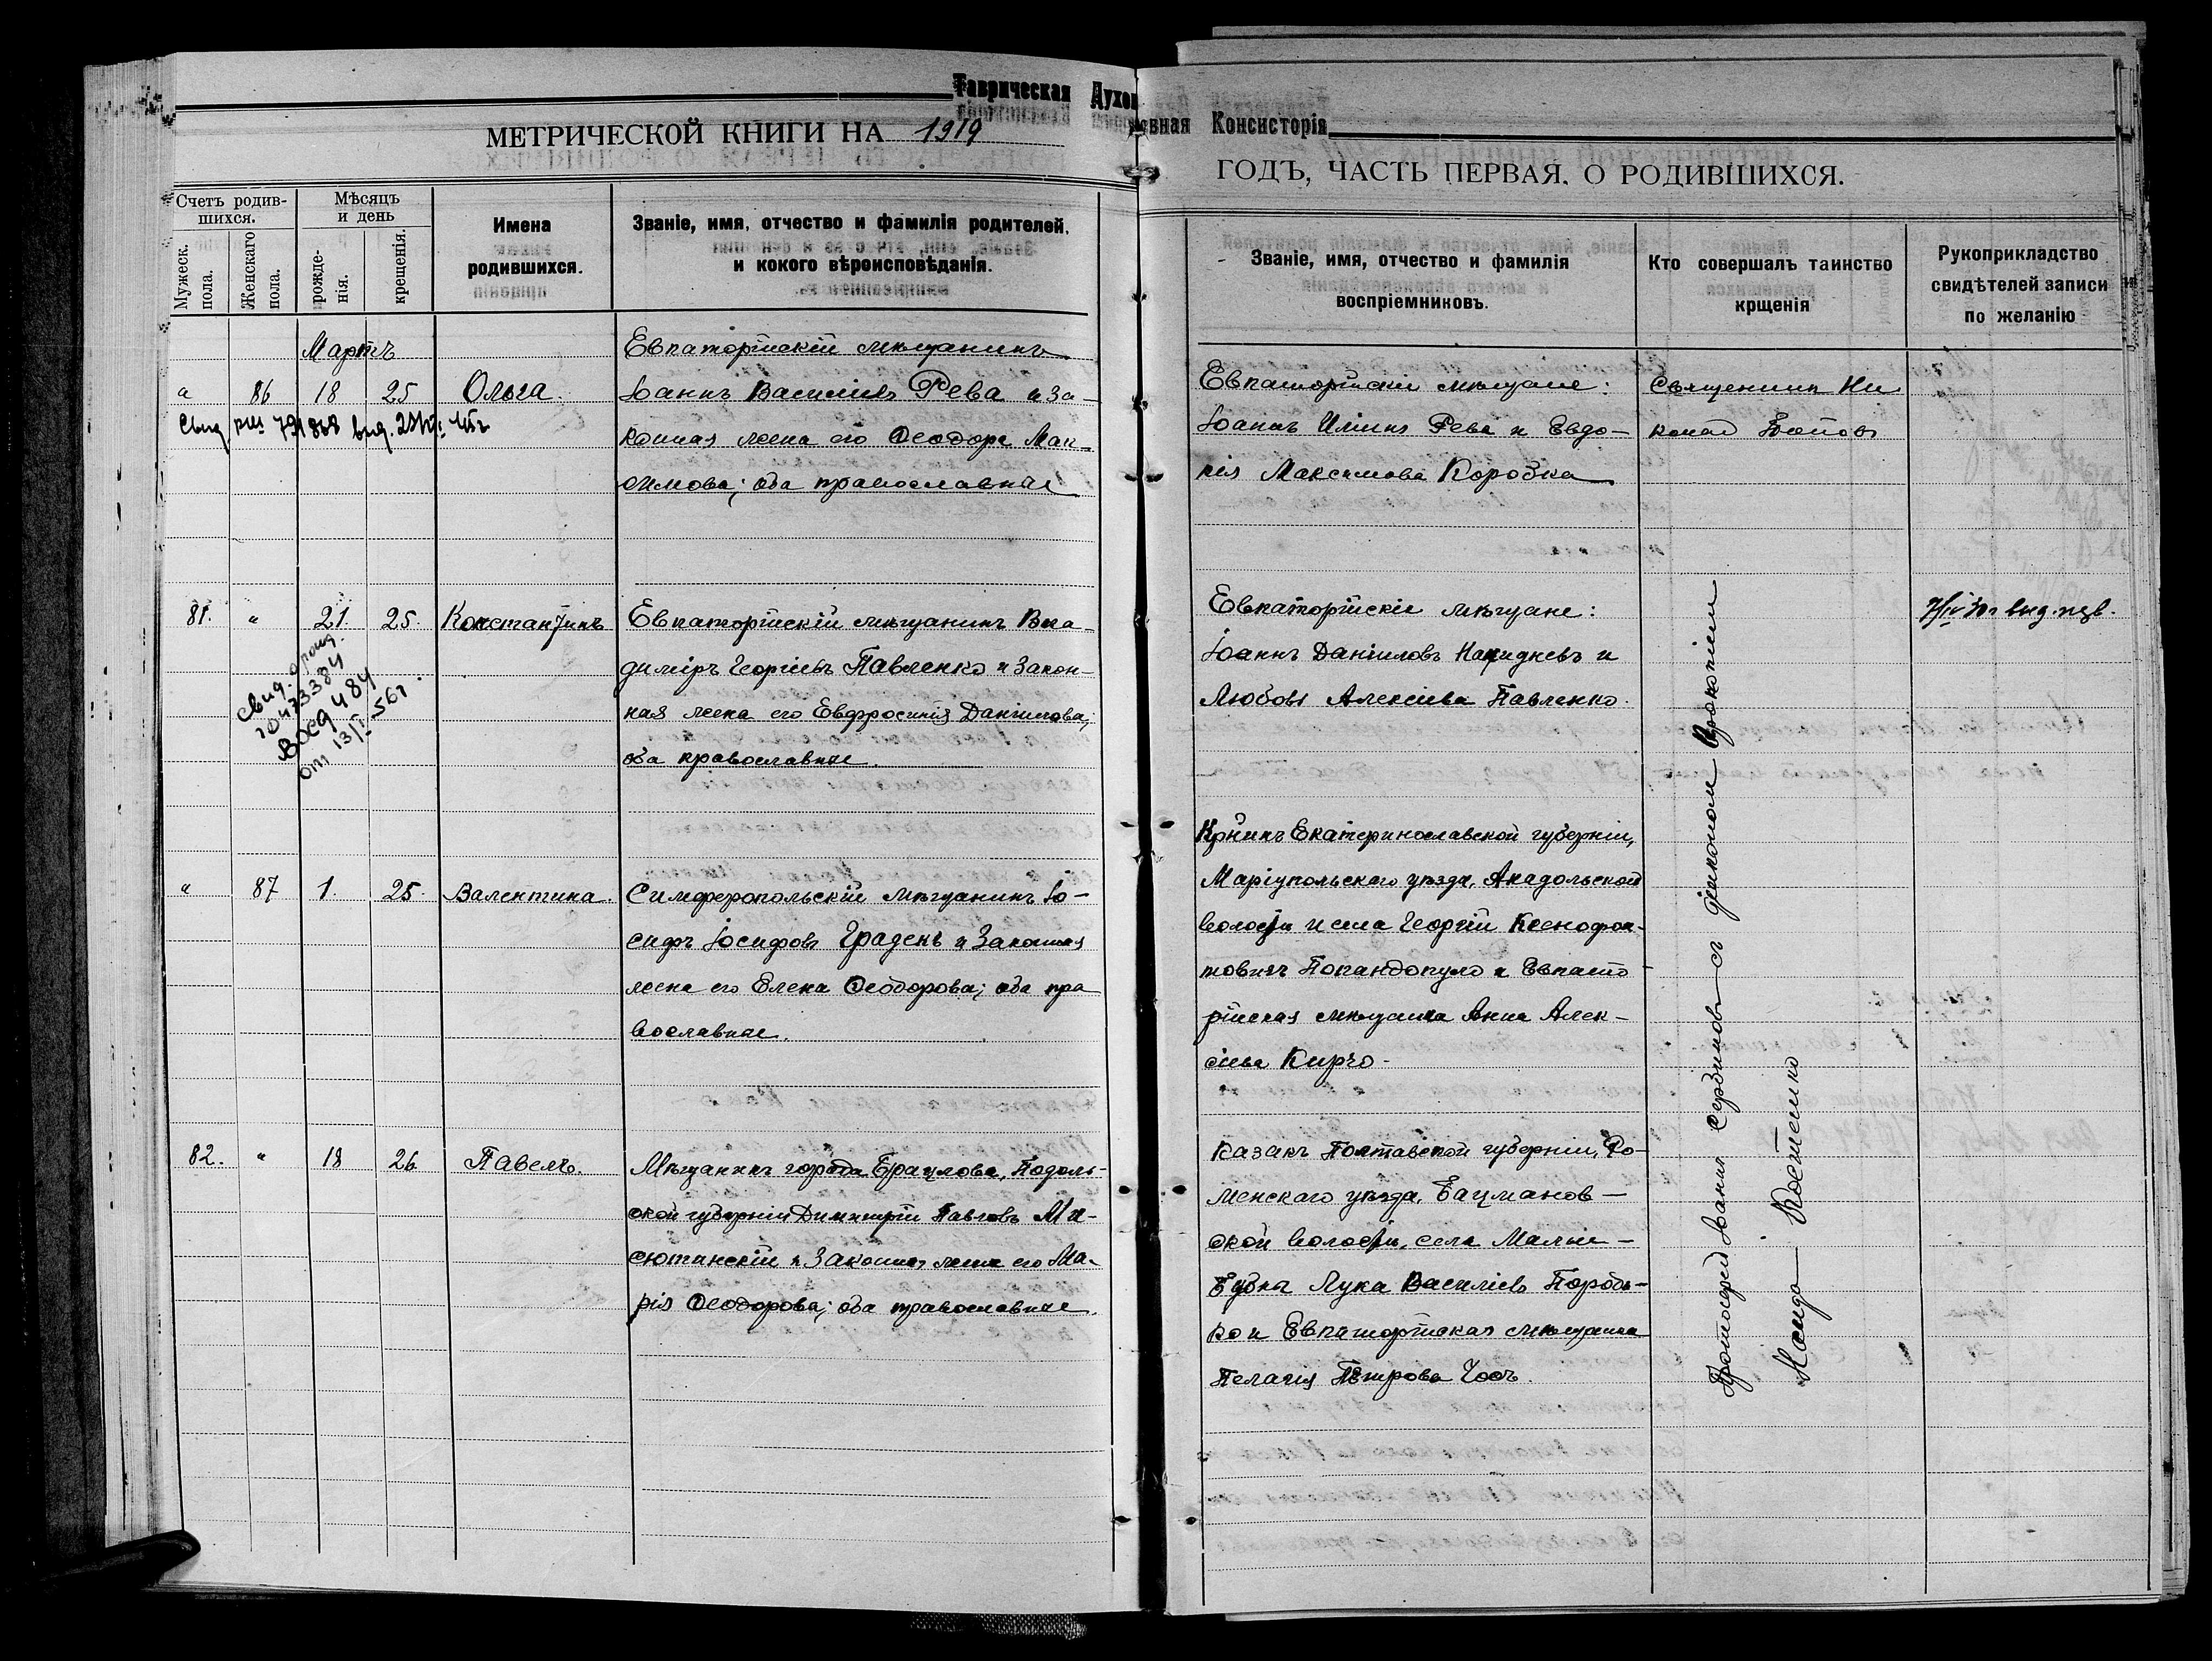 Таврическая Духовная Консисторія
МЕТРИЧЕСКОЙ КНИГИ НА 1919
ГОДЪ, ЧАСТЬ ПЕРВАЯ, О РОДИВШИХСЯ.
Счетъ родив-
шихся.
Мужеск.
пола.
Женскаго
пола.
Мѣсяцъ
и день
рожде-
нія.
крещенія.
Имена
родившихся.
Званіе, имя, отчество и фамилія родителей,
и кокого вѣроисповѣданія.
Званіе, имя, отчество и фамилія
воспріемниковъ.
Кто совершалъ таинство
крщенія
Рукоприкладство
свидѣтелей записи
по желанію
Мартъ
86 18 25 Ольга.
Евпаторійскій мѣщанинъ
Іоаннъ Василіевъ Рева и за-
конная жена его Ѳеодора Мак-
симова; оба православные
Евпаторійскіе мѣщане:
Іоаннъ Иліинъ Рева и Евдо-
кія Максимова Коробка
Священникъ Ни
81. " 21. 25. Константинъ
свид.
1047338
484
от 13/I 56г.
Евпаторійскій мѣщанинъ Вла-
диміръ Георгіевъ Павленко и закон-
ная жена его Евфросинія Даніилова;
оба православные.
Евпаторійскіе мѣщане:
Іоаннъ Даніиловъ и
Любовь Алексіева Павленко.
" 87 1. 25. Валентина.
Симферопольскій мѣщанинъ Іо-
сифъ Іосифовъ Градень и законная
жена его Елена Ѳеодорова; оба пра
вославные.
Екатеринославской губерніи,
Маріупольскаго уѣзда,
волости и села Георгій Ксенофон-
товичъ Попандопуло и Евпато-
рійская мѣщанка Анна Алек-
сіева Кирчо.
82. " 18 26 Павелъ.
Мѣщанинъ города Брацлова, Подоль-
ской губерніи Димитрій Павловъ Ми-
сютинскій и законная жена его Ма-
рія Ѳеодорова; оба православные.
Казакъ Полтавской губерніи, Ро-
менскаго уѣзда, Бацманов-
ской волости, села Малые-
Бубны Лука Василіевъ Поробь-
ко и Евпаторійская мѣщанка
Пелагія Петрова Чосъ.
Протоіерей Іоаннъ Сербиновъ съ діакономъ Прокопіемъ
Костенко